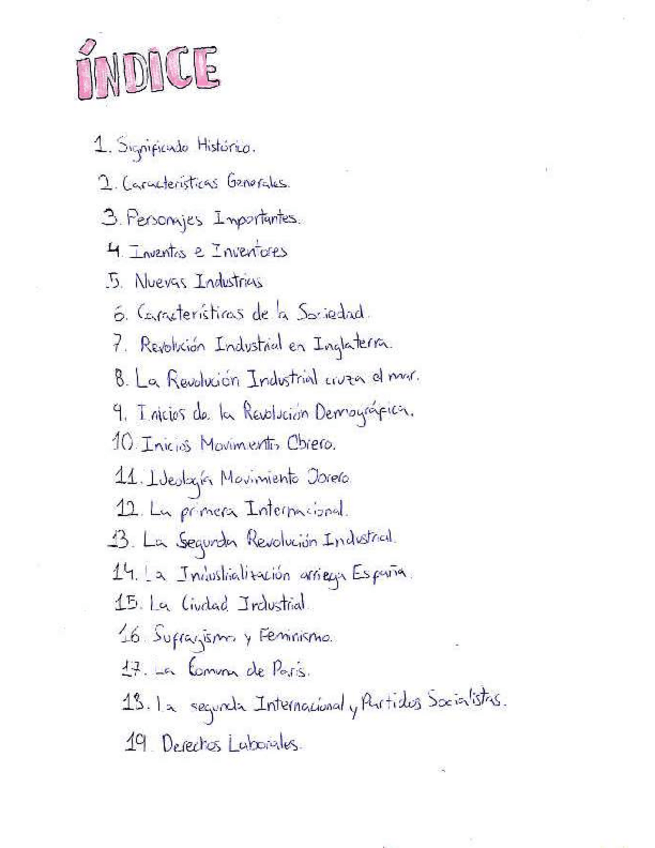 ÍNDICE
1. Significado Histórico.
2. Características Generales.
3. Personajes Importantes.
4. Inventos e Inventores
5. Nuevas Industrias
6. Características de la Sociedad.
7. Revolución Industrial en Inglaterra.
8. La Revolución Industrial cruza el mar.
9. Inicios de la Revolución Demográfica.
10. Inicios Movimiento Obrero.
11. Ideología Movimiento Obrero
12. La primera Internacional.
13. La Segunda Revolución Industrial.
14. La Industrialización arriega España.
15. La Ciudad Industrial.
16. Sufragismo y Feminismo.
17. La Comuna de París.
18. La segunda Internacional y Partidos Socialistas.
19. Derechos Laborales.